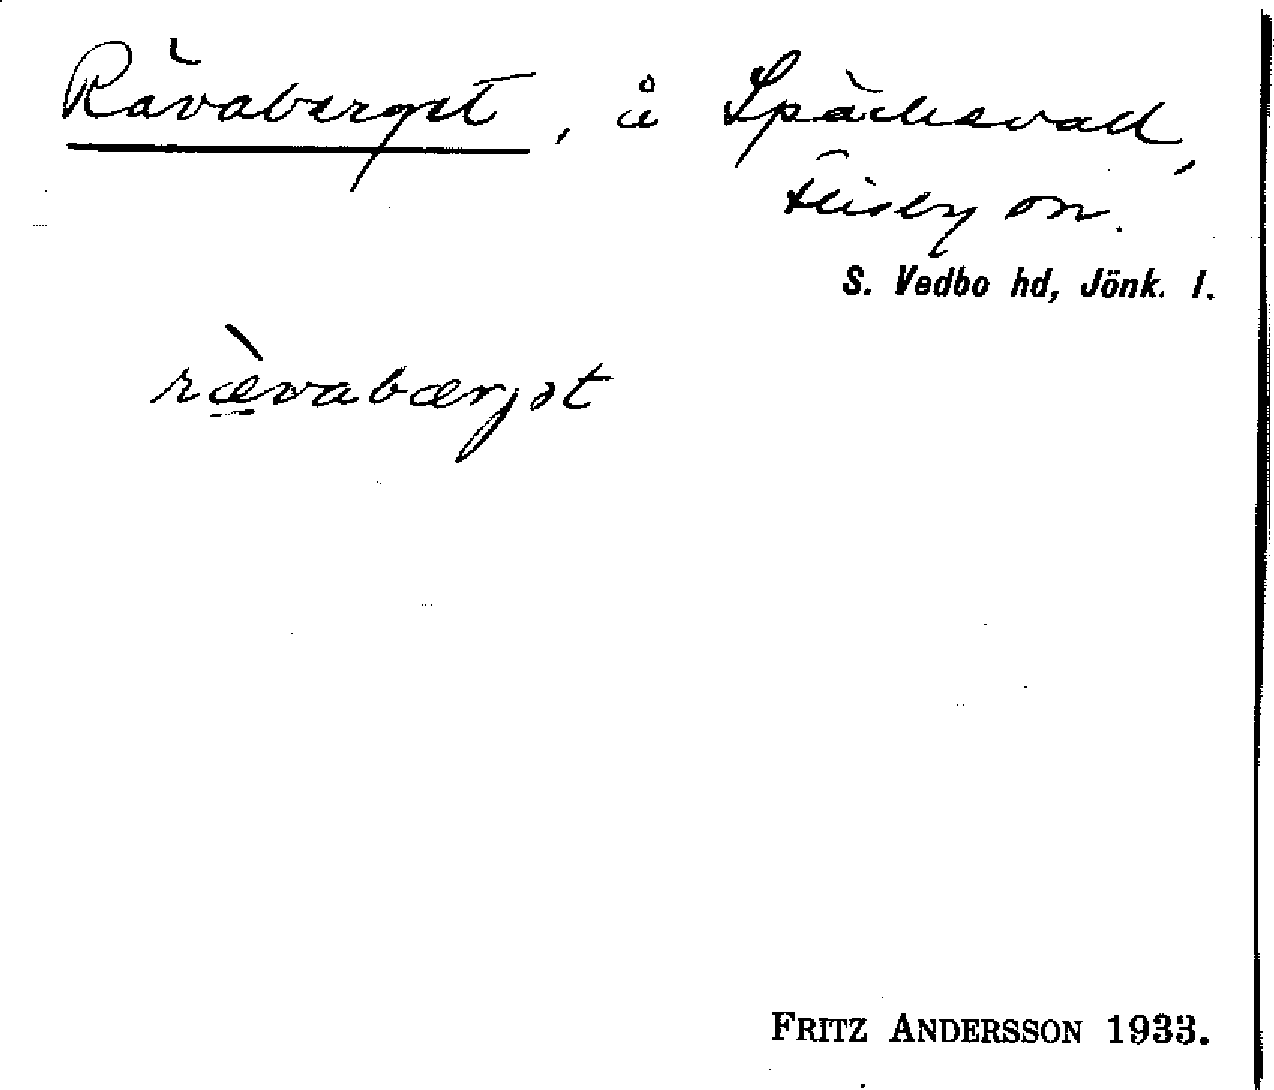 Rävaberget, å Späcksvad,
Flisby sn.
S. Vedbo hd, Jönk. l.
rævabærjət
FRITZ ANDERSSON 1933.